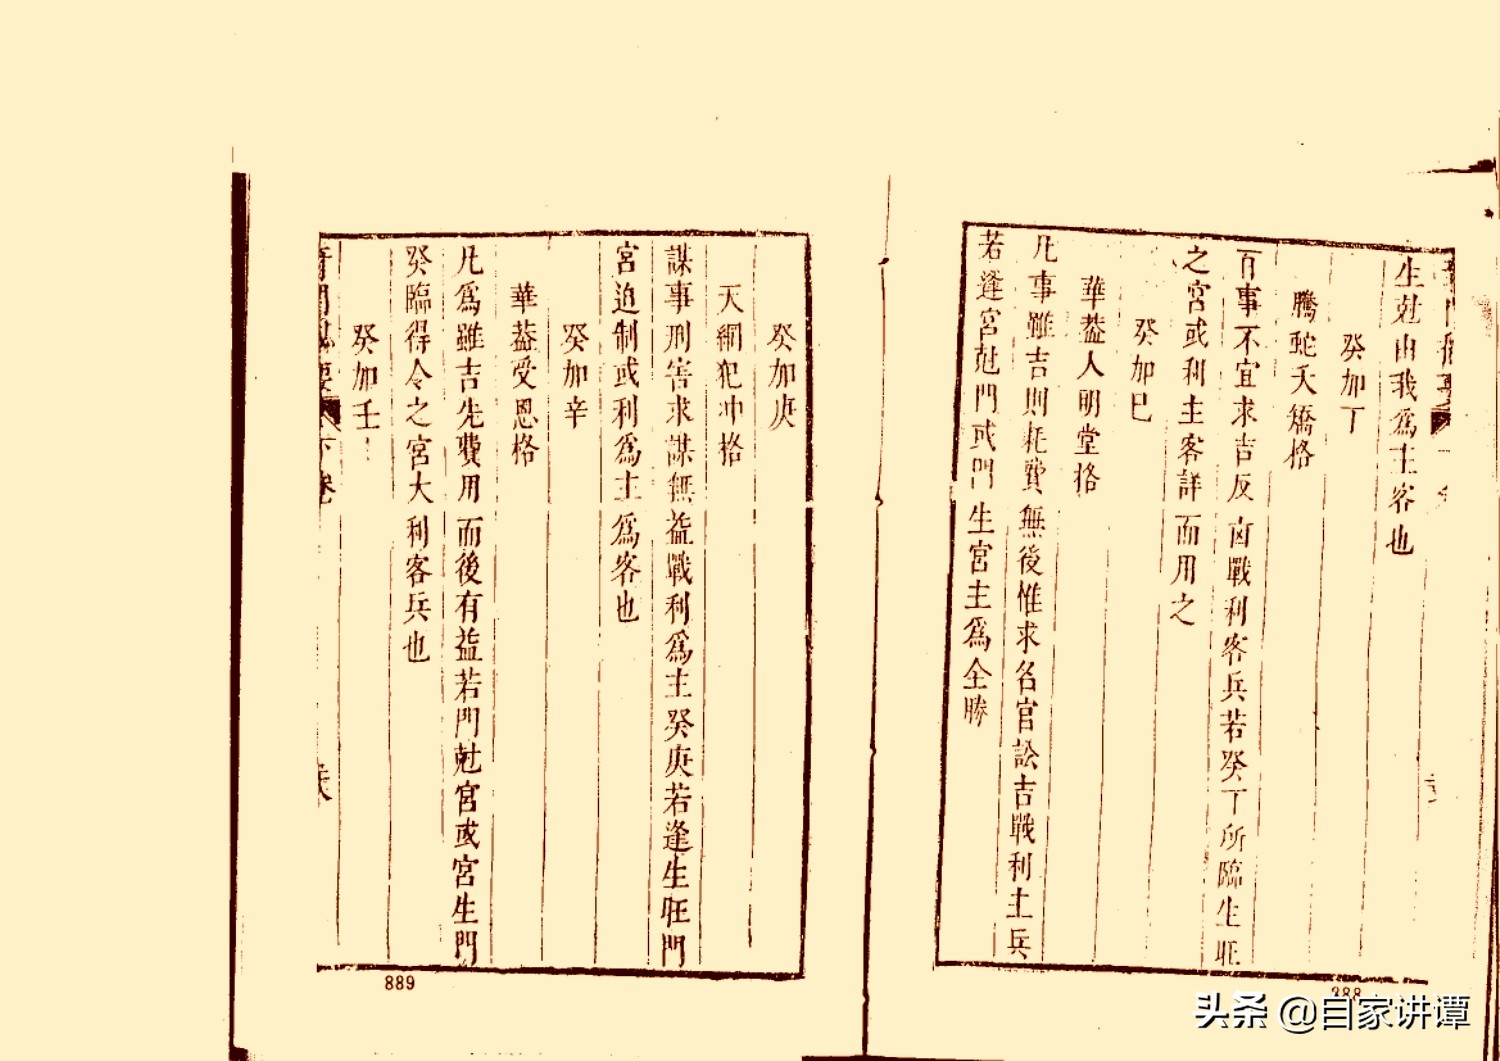 生尅由我爲主客也
癸加丁
騰蛇夭矯格
百事不宜求吉反凶戰利客兵若癸丁所臨生旺
之宮或利主客詳而用之
癸加己
華葢人明堂格
凡事雖吉則耗費無後惟求名官訟吉戰利主兵
若逢宮尅門或門生宮主爲全勝
388
癸加庚
天網犯冲格
謀事刑害求謀無益戰利爲主癸庚若逢生旺門
宮迫制或利爲主爲客也
癸加辛
華葢受恩格
凡爲雖吉先費用而後有益若門尅宮或宮生門
癸臨得令之宮大利客兵也
癸加壬
下卷
889
头条 @自家讲谭